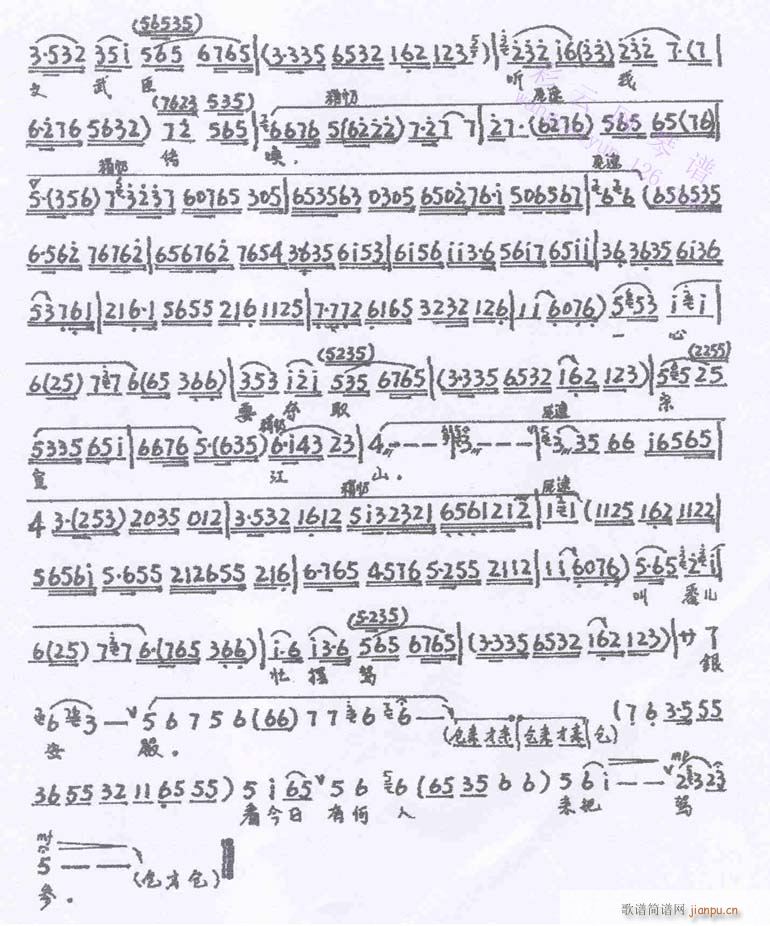 (56535)
3·532 35i 565 6765|(3·335 6532 162 123)|232 i6(33) 232 7·(7|
文 武 臣 听 我
(7623 535) 稍切 尾速
6·276 5632) 72 565|6676 5(6222) 7·27 7|27·(6276) 565 65(76)|
传 唤.
稍切 尾速
5·(356) 73237 60765 305|653563 0305 650276·i 506567|6 6 (656535
6·562 76762|656762 7654 3635 6i53|6i56 ii3·6 56i7 65ii|36 3635 6i36
53761|216·1 5655 216 1125|7·772 6165 3232 126|1i 6076) 553 i i|
一 心
(5235) (2255)
6(25) 77 6(65 366)|353 i2i 535 6765|(3·335 6532 162 123)|55 25
要 夺 取 宗
稍切 尾速
5335 65i|6676 5·(635) 6·i43 23|4 — — — 3 — — — 3 35 66 i6565|
室 江 山.
稍切 尾速
4 3·(253) 2035 012|3·532 1612 5i32321 6561212|1 1 (1125 162 1122|
5656i 5·655 212655 216|6·765 4576 5·255 2112|1i 6076) 5·65 2 i|
叫 番儿
(5·235)
6(25) 77 6·(765 366)|i·6 i3·6 565 6765|(3·335 6532 162 123)|サ 7
忙 摆 驾 銀
6 3 — 5 6 7 5 6 (66) 7 7 6 6 — (仓来才来 仓来才来 仓) (7 6 3·5 55
安 殿.
36 55 32 11 65 55) 5 i 65 5 6 6 (65 35 6 6) 5 6 i — — mp 2 3 2 3
看今日 有何 人 来把 驾
mf
5 — — (仓才仓)
参.
彩云琴谱
歌谱简谱网 jianpu.cn